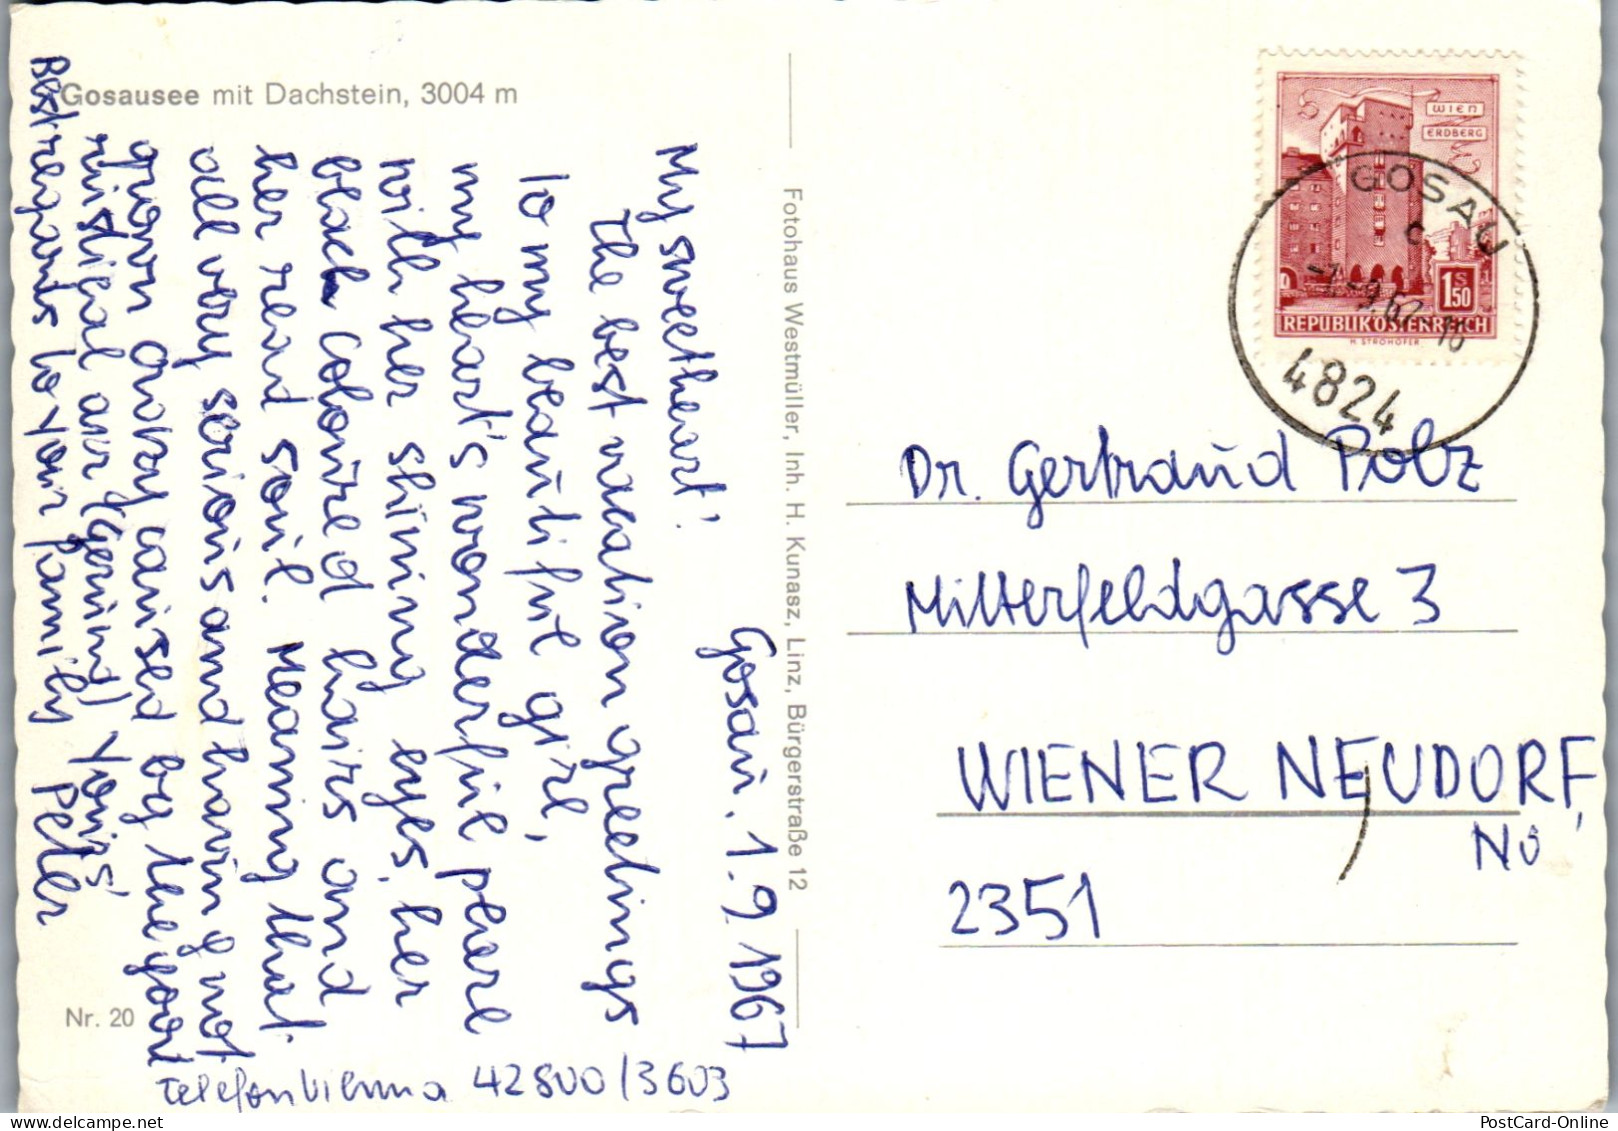 Gosausee mit Dachstein, 3004 m
Gosau, 1.9.1967
My sweetheart!
The best vacation greetings
to my beautiful girl,
my heart's wonderful pearl
with her shining eyes, her
black coloured hairs and
her read soul. Meaning that
all very serious and having not
grown crazy caused by the good
Yours,
Peter
Best regards to your family
Telefon Vienna 42800/3603
Nr. 20
Fotohaus Westmüller, Inh. H. Kunasz, Linz, Bürgerstraße 12
WIEN
ERDBERG
1 S 50
REPUBLIK ÖSTERREICH
H. STROHOFER
GOSAU
c
-1.-9.67-16
4824
Dr. Gertraud Polz
Mitterfeldgasse 3
WIENER NEUDORF,
NÖ
2351
PostCard-Online